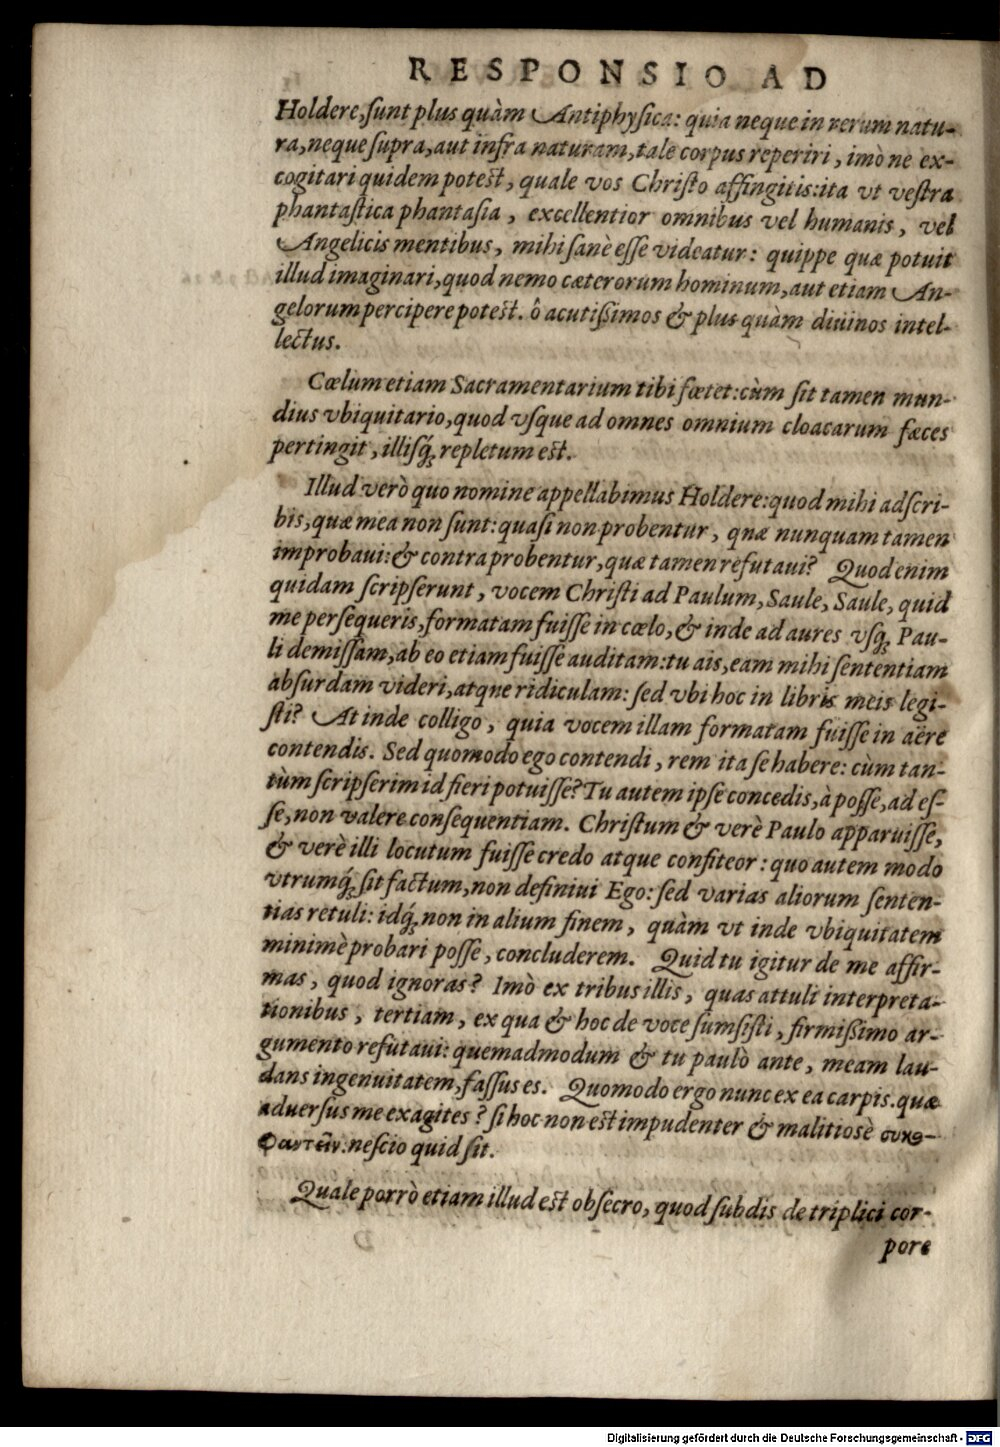 RESPONSIO AD
Holdere, ſunt plus quàm Antiphyſica: quia neque in rerum natu-
ra, neque ſupra, aut infra naturam, tale corpus reperiri, imò ne ex-
cogitari quidem poteſt, quale vos Chriſto affingitis: ita vt veſtra
phantaſtica phantaſia, excellentior omnibus vel humanis, vel
Angelicis mentibus, mihi ſanè eſſe videatur: quippe quæ potuit
illud imaginari, quod nemo cæterorum hominum, aut etiam An-
gelorum percipere poteſt. ô acutiſsimos & plus quàm diuinos intel-
lectus.
Cœlum etiam Sacramentarium tibi fœtet: cùm ſit tamen mun-
dius vbiquitario, quod vſque ad omnes omnium cloacarum fæces
pertingit, illiſq́; repletum eſt.
Illud verò quo nomine appellabimus Holdere: quod mihi adſcri-
bis, quæ mea non ſunt: quaſi non probentur, qnæ nunquam tamen
improbaui: & contra probentur, quæ tamen refutaui? Quod enim
quidam ſcripſerunt, vocem Chriſti ad Paulum, Saule, Saule, quid
me perſequeris, formatam fuiſſe in cœlo, & inde ad aures vſq; Pau-
li demiſſam, ab eo etiam fuiſſe auditam: tu ais, eam mihi ſententiam
abſurdam videri, atque ridiculam: ſed vbi hoc in libris meis legi-
ſti? At inde colligo, quia vocem illam formatam fuiſſe in aëre
contendis. Sed quomodo ego contendi, rem ita ſe habere: cùm tan-
tùm ſcripſerim id fieri potuiſſe? Tu autem ipſe concedis, à poſſe, ad eſ-
ſe, non valere conſequentiam. Chriſtum & verè Paulo apparuiſſe,
& verè illi locutum fuiſſe credo atque confiteor: quo autem modo
vtrumq́; ſit factum, non definiui Ego: ſed varias aliorum ſenten-
tias retuli: idq́; non in alium finem, quàm vt inde vbiquitatem
minimè probari poſſe, concluderem. Quid tu igitur de me affir-
mas, quod ignoras? Imò ex tribus illis, quas attuli interpreta-
tionibus, tertiam, ex qua & hoc de voce ſumſiſti, firmiſsimo ar-
gumento refutaui: quemadmodum & tu paulò ante, meam lau-
dans ingenuitatem, faſſus es. Quomodo ergo nunc ex ea carpis. quæ
aduerſus me exagites? ſi hoc non eſt impudenter & malitioſè συκο-
φαντεῖν: neſcio quid ſit.
Quale porrò etiam illud eſt obſecro, quod ſubdis de triplici cor-
pore
Digitalisierung gefördert durch die Deutsche Forschungsgemeinschaft - DFG